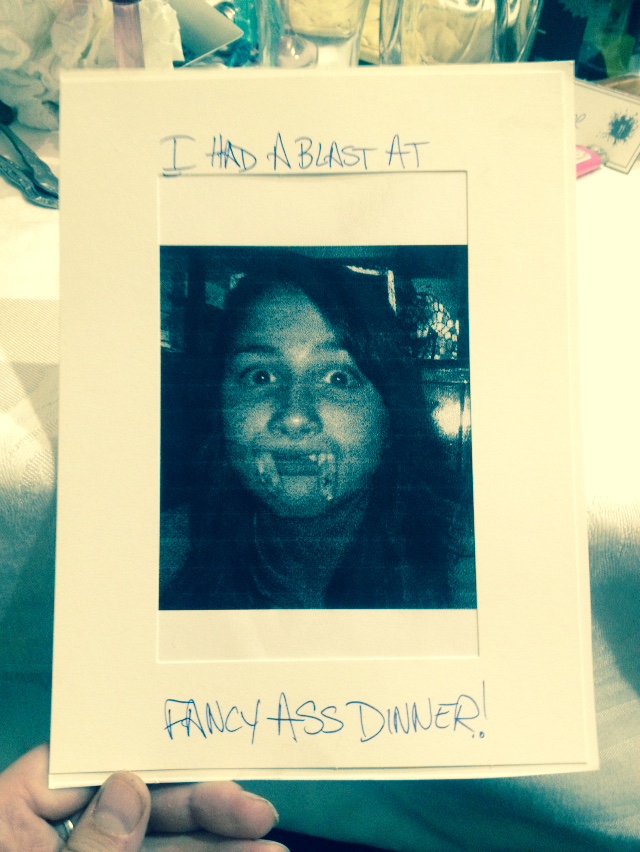 I HAD A BLAST AT
FANCY ASS DINNER!